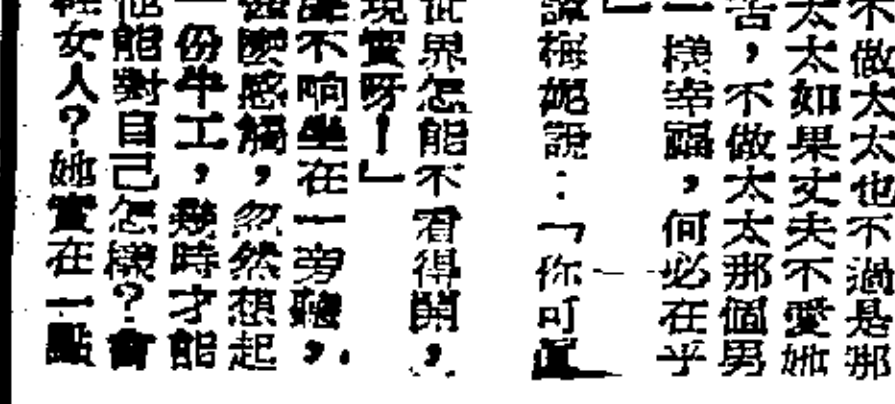 不做太太也不過是那
太太如果丈夫不愛她
苦，不做太太那個男
一樣幸福，何必在乎
」
梅妮說：「你可真
世界怎能不看得開，
現實呀！」
不响坐在一旁聽，
感觸，忽然想起
一份牛工，幾時才能
他能對自己怎樣？會
女人？她實在一點